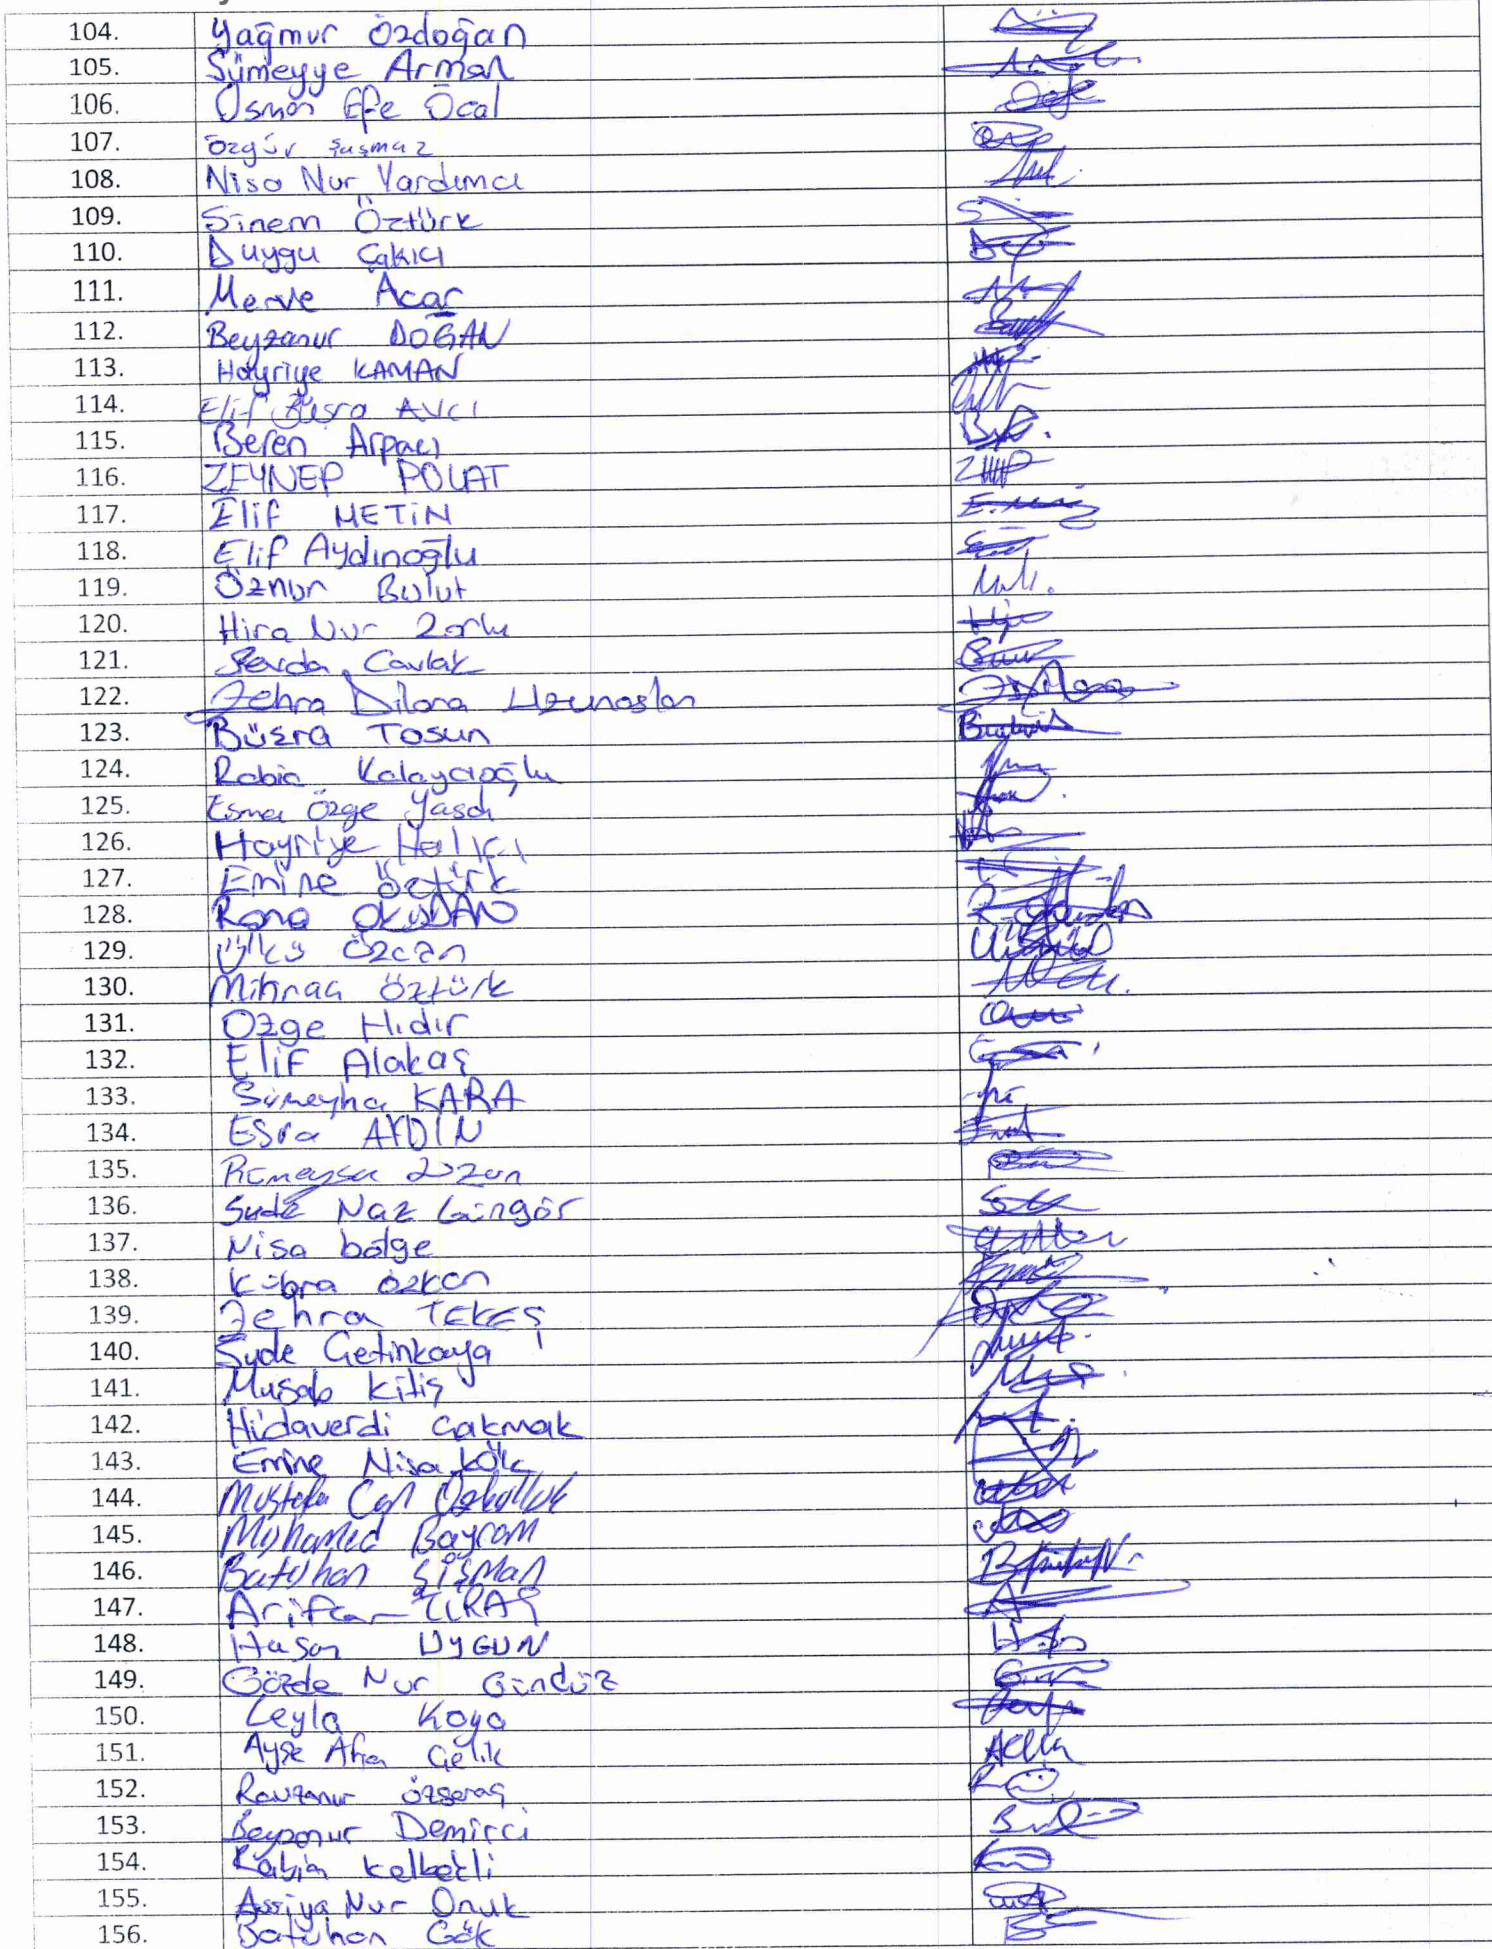 104. Yağmur Özdoğan
105. Sümeyye Arman
106. Osman Efe Öcal
107. Özgür Şaşmaz
108. Nisa Nur Yardımcı
109. Sinem Öztürk
110. Duygu Çakıcı
111. Merve Acar
112. Beyzanur DOĞAN
113. Hayriye KAMAN
114. Elif Büşra AVCI
115. Beren Arpacı
116. ZEYNEP POLAT
117. Elif METİN
118. Elif Aydınoğlu
119. Öznur Bulut
120. Hira Nur Zorlu
121. Sevda Cavlak
122. Zehra Dilara Uzunaslan
123. Büşra Tosun
124. Rabia Kalaycıoğlu
125. Esma Özge Yasdı
126. Hayriye Halıcı
127. Emine Öztürk
128. Rana OKUDAN
129. Ülkü Özcan
130. Mihraa Öztürk
131. Özge Hıdır
132. Elif Alakaş
133. Sümeyha KARA
134. Esra AYDIN
135. Rümeysa
136. Sude Naz Güngör
137. Nisa bölge
138. Kübra Özkan
139. Zehra TEKEŞ
140. Sude Çetinkaya
141. Musab Kiliş
142. Hüdaverdi Çakmak
143. Emine Nisa kök
144. Mustafa Can
145. Muhamed Bayram
146. Batuhan ŞİŞMAN
147. Arifcan
148. Hasan UYGUN
149. Gözde Nur Gündüz
150. Leyla Kaya
151. Ayşe Afra Çelik
152. Ravzanur Özsaraç
153. Beyzanur Demirci
154. Rabia
155. Assiya Nur Onuk
156. Batuhan Gök